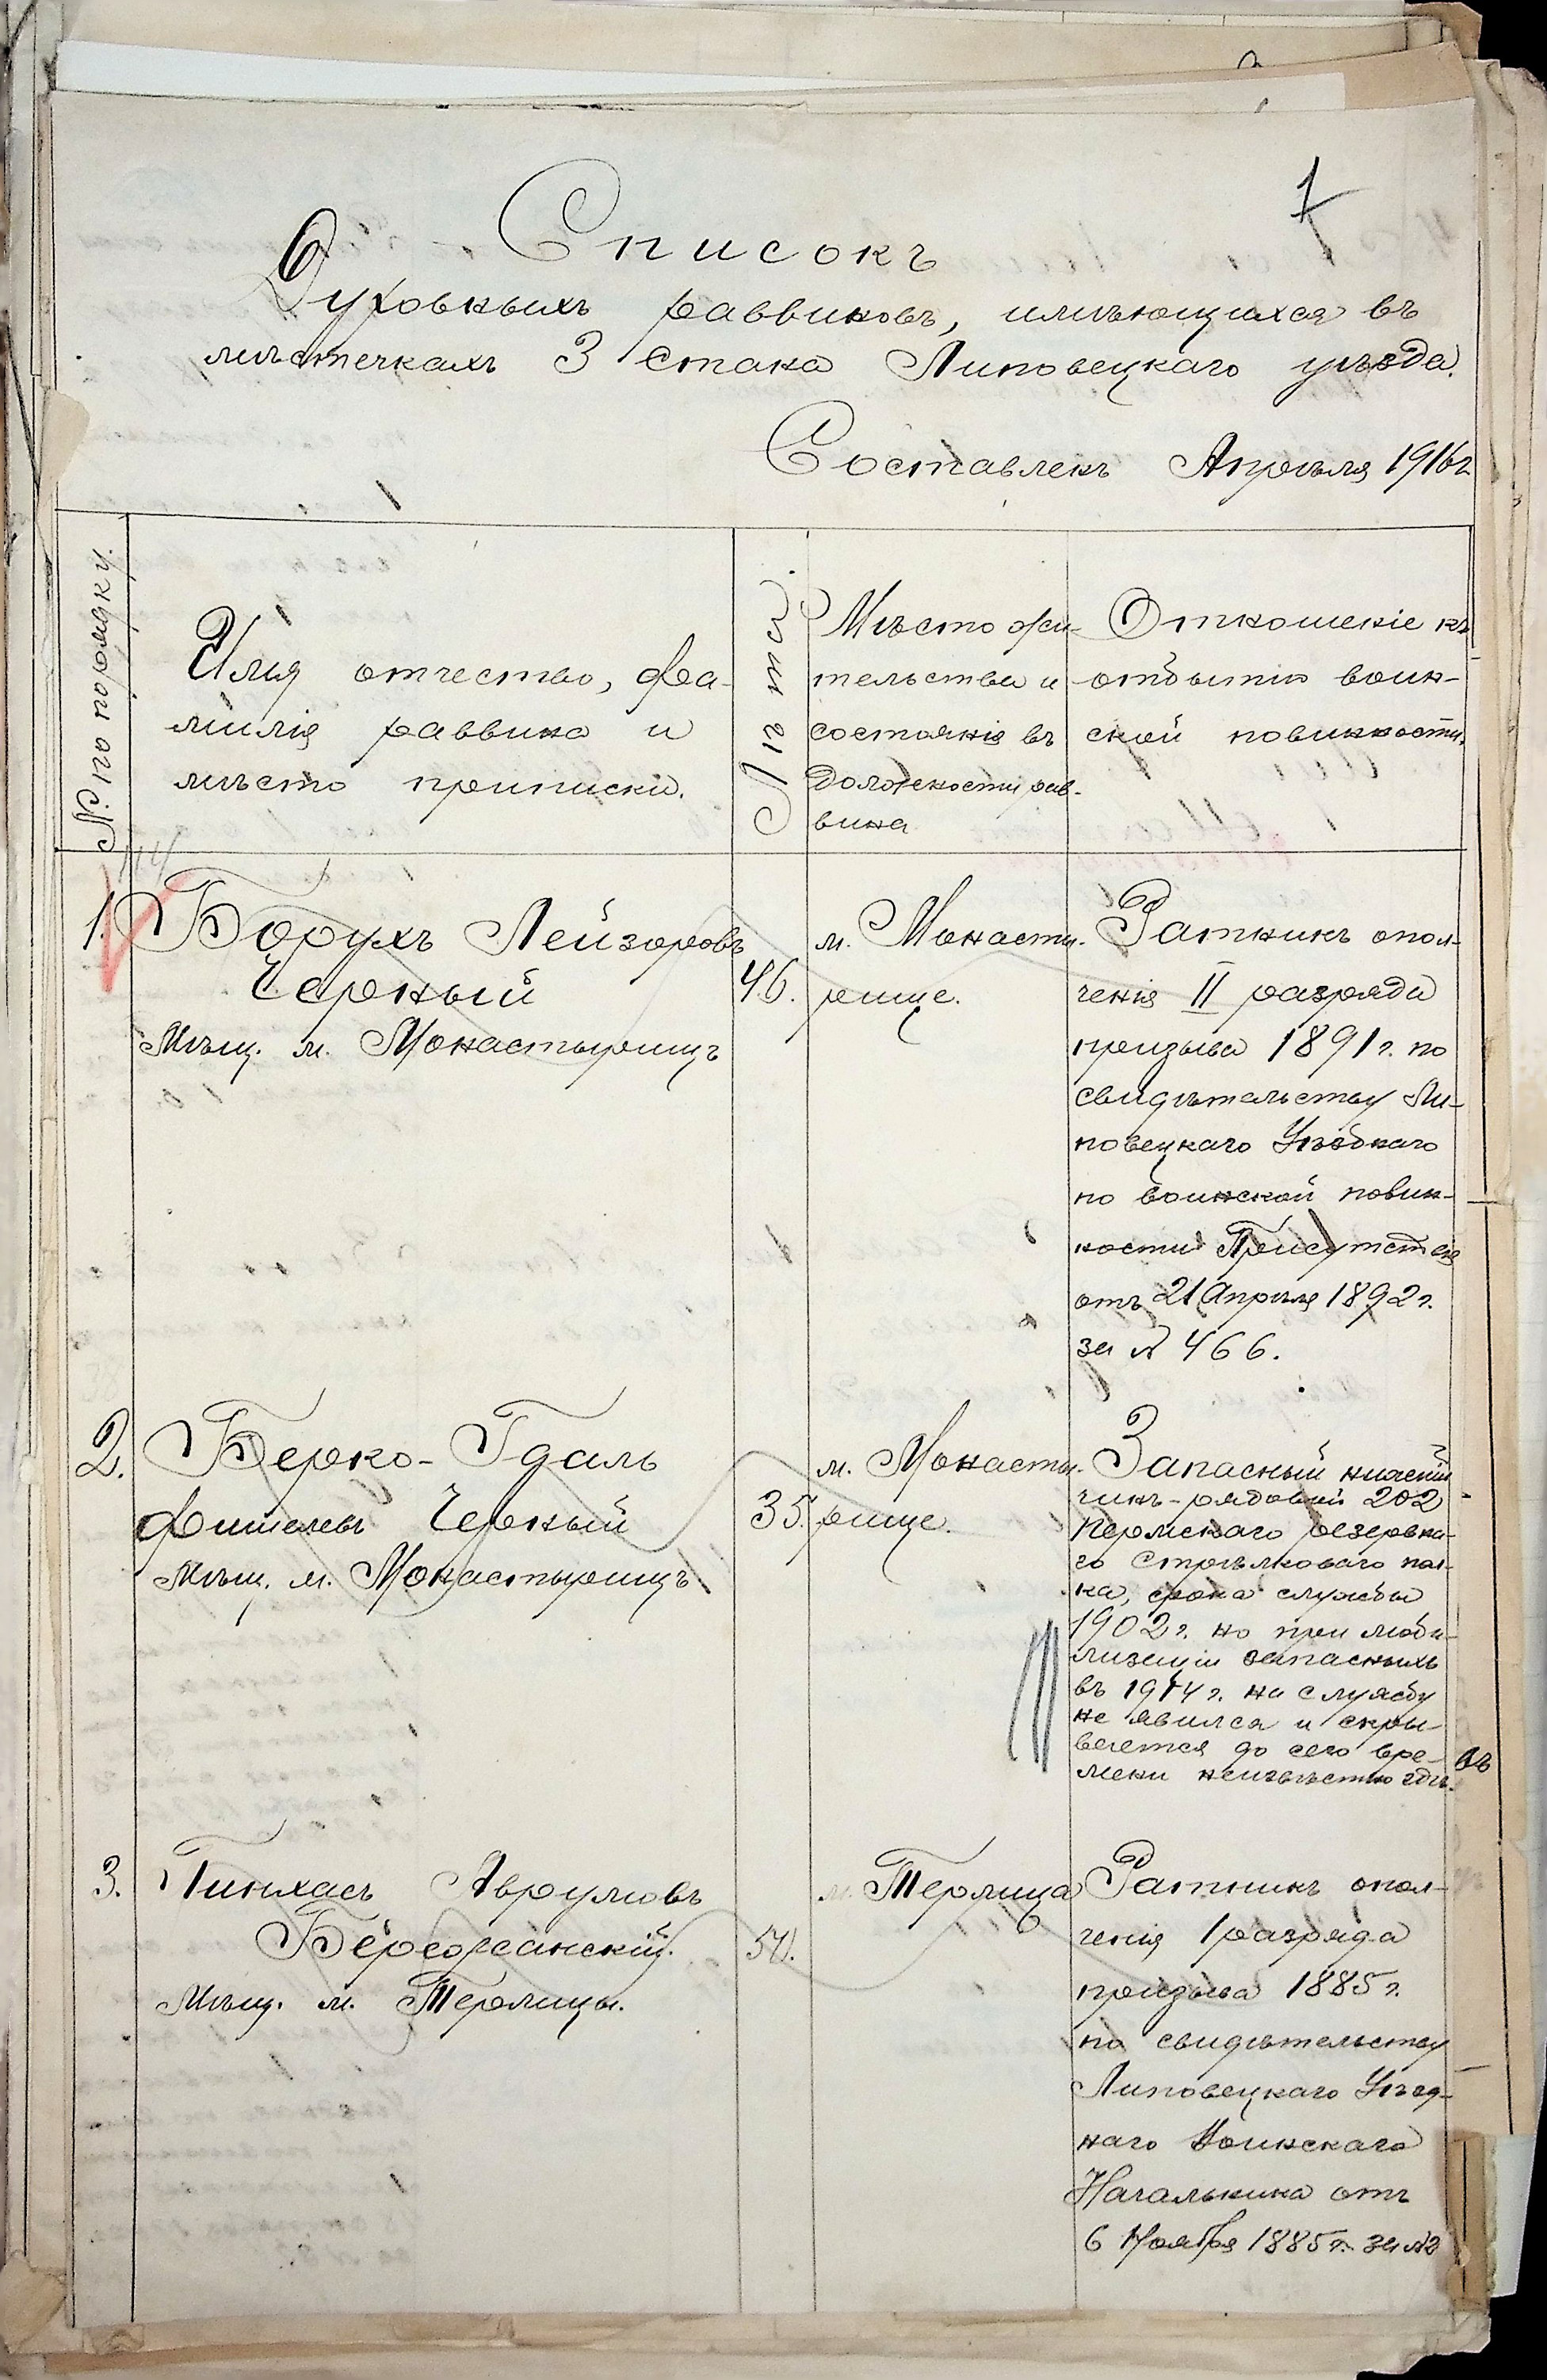 7
Списокъ
Духовныхъ раввиновъ, имѣющихся въ
мѣстечкахъ 3 стана Липовецкаго уѣзда.
Составленъ Апрѣля 1916 г
№ по порядку.
Имя отчество, фа-
милія раввина и
мѣсто приписки.
Лѣта.
Мѣсто жи-
тельства и
состоянія въ
должности рав-
вина
Отношеніе къ
отбытію воин-
ской повинности.
1.
Борухъ Лейзоровъ
Черный
Мѣщ. м. Монастырищъ
46.
м. Монасты-
рище.
Ратникъ опол-
ченія II разряда
призыва 1891 г. по
свидѣтельству Ли-
повецкаго Уѣзднаго
по воинской повин-
ности Присутствія
отъ 21 Апрѣля 1892 г.
за № 466.
2.
Берко-Гдаль
Фишелевъ Черный
Мѣщ. м. Монастырищъ
35.
м. Монасты-
рище.
Запасный нижній
чинъ-рядовой 202
Пермскаго резервна-
го Стрѣлковаго пол-
ка, срока службы
1902 г. но при моби-
лизаціи запасныхъ
въ 1914 г. на службу
не явился и скры-
вается до сего вре-
мени неизвѣстно гдѣ.
въ
3.
Пинхасъ Аврумовъ
Бережанскій.
Мѣщ. м. Терлицы.
м. Терлица
Ратникъ опол-
ченія 1 разряда
призыва 1885 г.
по свидѣтельству
Липовецкаго Уѣзд-
наго Воинскаго
Начальника отъ
6 Ноября 1885 г. за №